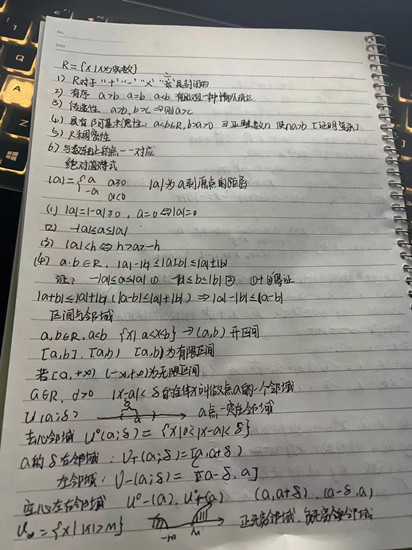 R = {x | x为实数}
1) R对于 "+" "-" "×" "÷" 是封闭的
2) 有序 a>b a=b a<b 有且仅一种情况成立
3) 传递性 a>b, b>c ⇒ a>c
4) 具有阿基米德性: a<b∈R, b>a>0 ∃正整数n 使na>b
5) R稠密性
6) 与数轴上的点一一对应
绝对值等式
|a| = { a a≥0 -a a<0 |a|为a到原点的距离
(1) |a|=|-a|≥0, a=0⇔|a|=0
(2) -|a|≤a≤|a|
(3) |a|<h ⇔ h>a>-h
(4) a,b∈R, |a|-|b|≤|a+b|≤|a|+|b|
证: -|a|≤a≤|a| ① -|b|≤b≤|b| ② ①+②得证
|a+b|≤|a|+|b| (|a-b|≤|a|+|b|) ⇒ |a|-|b|≤|a-b|
区间与邻域
a,b∈R, a<b {x| a<x<b} → (a,b) 开区间
[a,b], [a,b) (a,b]为有限区间
若[a,+∞) (-∞,+∞)为无限区间
a∈R, δ>0 |x-a|<δ 的全体x叫做点a的一个邻域
U(a;δ) a点一定在邻域
去心邻域 U°(a;δ) = {x|0<|x-a|<δ}
a的δ右邻域: U+(a;δ)=[a,a+δ)
左邻域: U-(a;δ)= (a-δ,a]
空心左右邻域 U°-(a), U°+(a) (a,a+δ), (a-δ,a)
U∞ = {x| |x|>M} -M M 正无穷邻域, 负无穷邻域